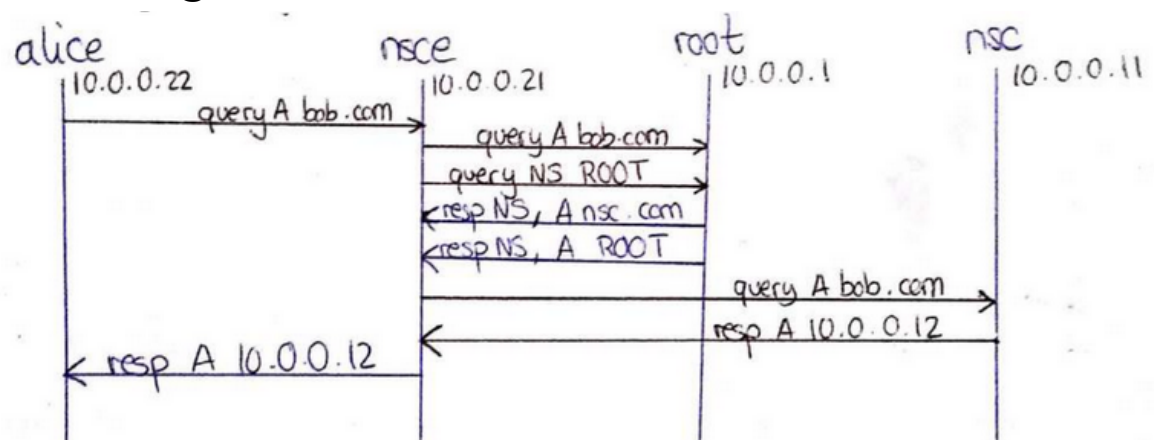 alice nsce root nsc
10.0.0.22 10.0.0.21 10.0.0.1 10.0.0.11
query A bob.com
query A bob.com
query NS ROOT
resp NS, A nsc.com
resp NS, A ROOT
query A bob.com
resp A 10.0.0.12
resp A 10.0.0.12